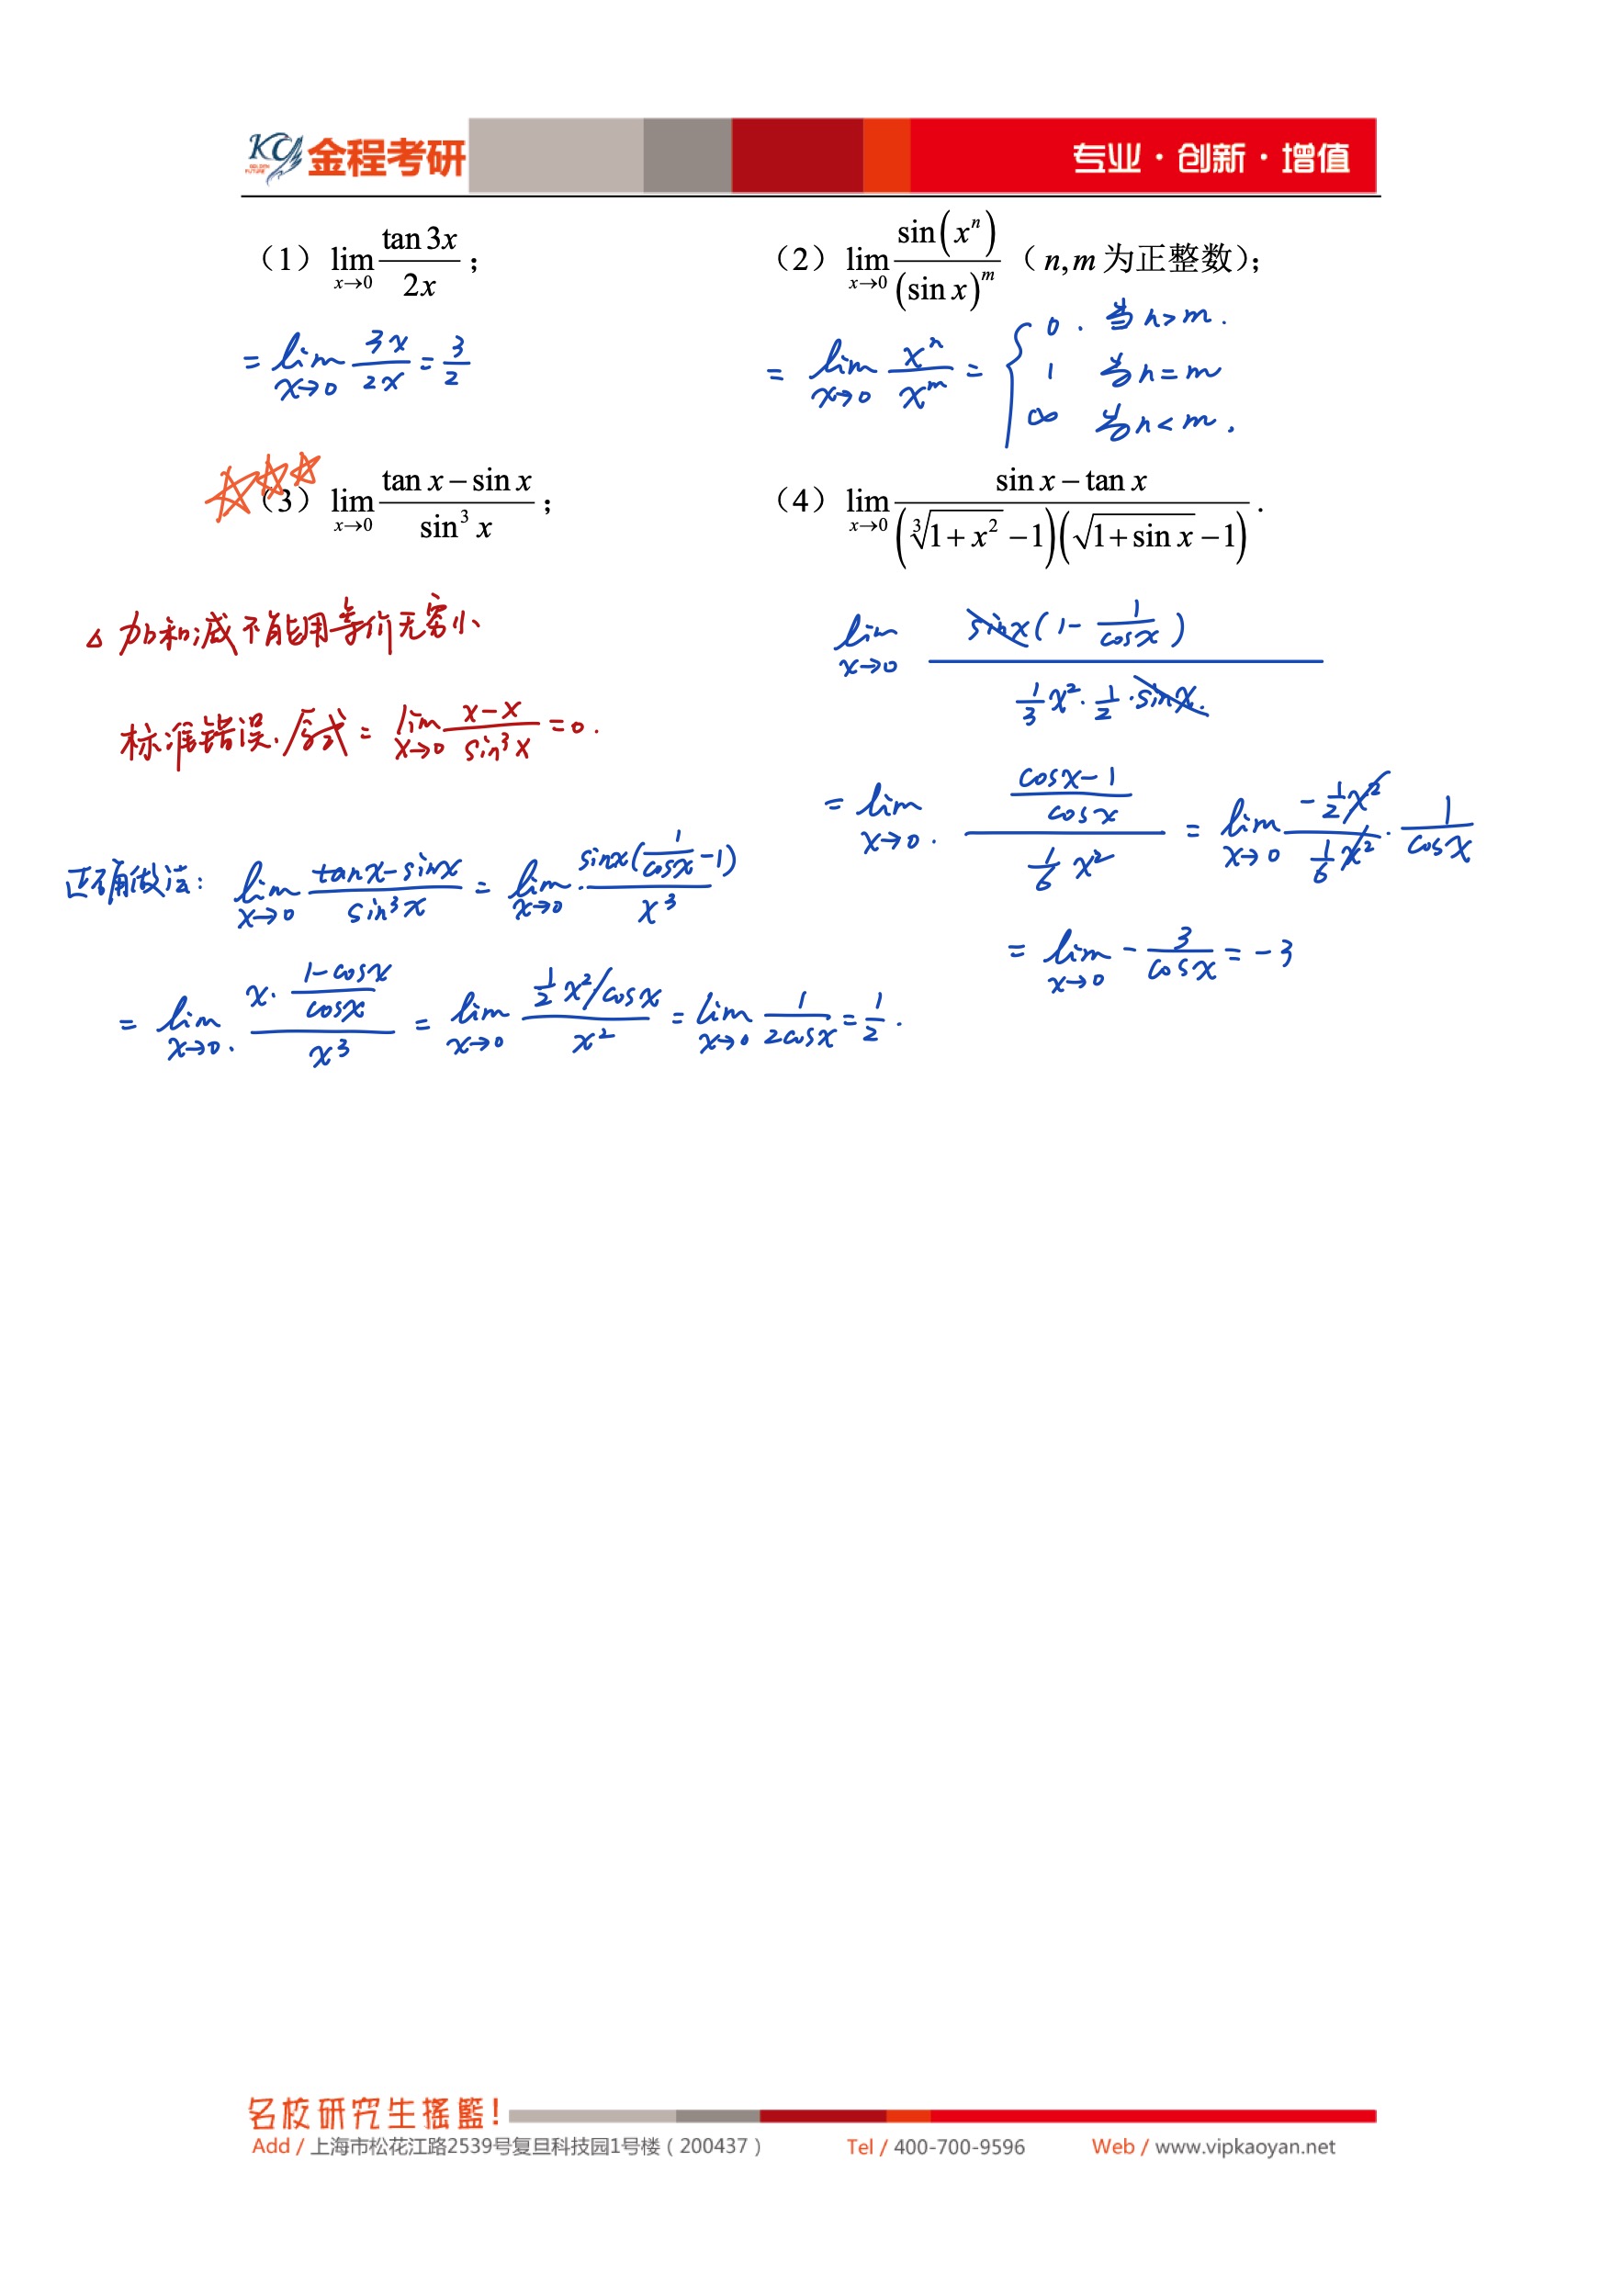 KCy GOLDEN FUTURE 金程考研 专业·创新·增值
（1） lim_{x→0} tan 3x / 2x ；
= lim_{x→0} 3x / 2x = 3/2
（2） lim_{x→0} sin(x^n) / (sin x)^m （ n, m 为正整数）；
= lim_{x→0} x^n / x^m = { 0 . 当 n > m .
1 当 n = m
∞ 当 n < m .
（3） lim_{x→0} (tan x − sin x) / sin^3 x ；
△ 加和减不能用等价无穷小
标准错误. 原式 = lim_{x→0} (x − x) / sin^3 x = 0 .
正确做法: lim_{x→0} (tan x − sin x) / sin^3 x = lim_{x→0} sin x (1/cos x − 1) / x^3
= lim_{x→0} x · ((1 − cos x) / cos x) / x^3 = lim_{x→0} (1/2 x^2 / cos x) / x^2 = lim_{x→0} 1 / 2cos x = 1/2 .
（4） lim_{x→0} (sin x − tan x) / ((∛(1 + x^2) − 1)(√(1 + sin x) − 1)) .
lim_{x→0} sin x (1 − 1/cos x) / (1/3 x^2 · 1/2 · sin x)
= lim_{x→0} ((cos x − 1) / cos x) / (1/6 x^2) = lim_{x→0} (−1/2 x^2) / (1/6 x^2) · 1/cos x
= lim_{x→0} − 3/cos x = −3
名校研究生摇籃!
Add / 上海市松花江路2539号复旦科技园1号楼（200437） Tel / 400-700-9596 Web / www.vipkaoyan.net